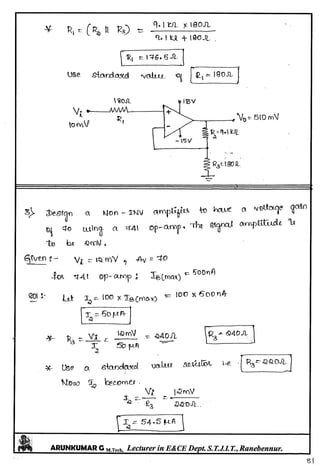 * R₁ = (R₂ || R₃) = 9.1 kΩ × 180Ω / 9.1 kΩ + 180Ω.
R₁ = 176.5 Ω
Use standard value of R₁ = 180Ω
180Ω
+15V
Vi
R₁
10mV
V₀ = 510 mV
-15V
R₂=9.1kΩ
R₃=180Ω
3) Design a Non-INV amplifier to have a voltage gain
of 70 using a 741 op-amp. The signal amplitude is
to be 12mV.
Given :- Vi = 12 mV, Av = 70
for 741 op-amp : IB(max) = 500nA
Sol :- Let I₂ = 100 × IB(max) = 100 × 500nA
I₂ = 50 µA
* R₃ = Vi / I₂ = 12mV / 50 µA = 240Ω
R₃ = 240Ω
* Use a standard value resistor i.e R₃ = 220Ω.
Now I₂ becomes.
I₂ = Vi / R₃ = 12mV / 220Ω.
I₂ = 54.5 µA
ARUNKUMAR G M.Tech, Lecturer in E&CE Dept. S.T.J.I.T., Ranebennur.
81